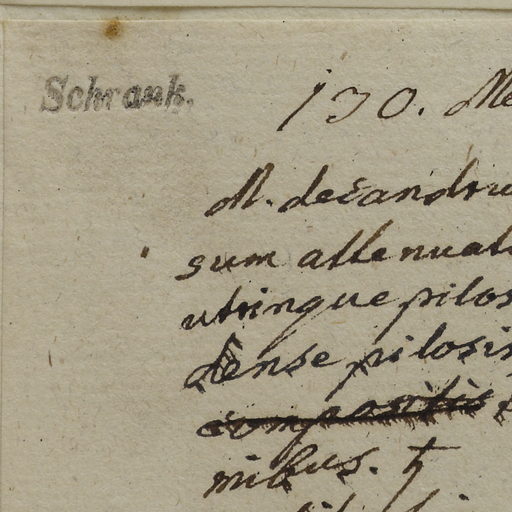 Schrank.
130. Me
M. decandru
sum attenuat
utrinque pilos
dense pilosis
compositis
mibus. ♄